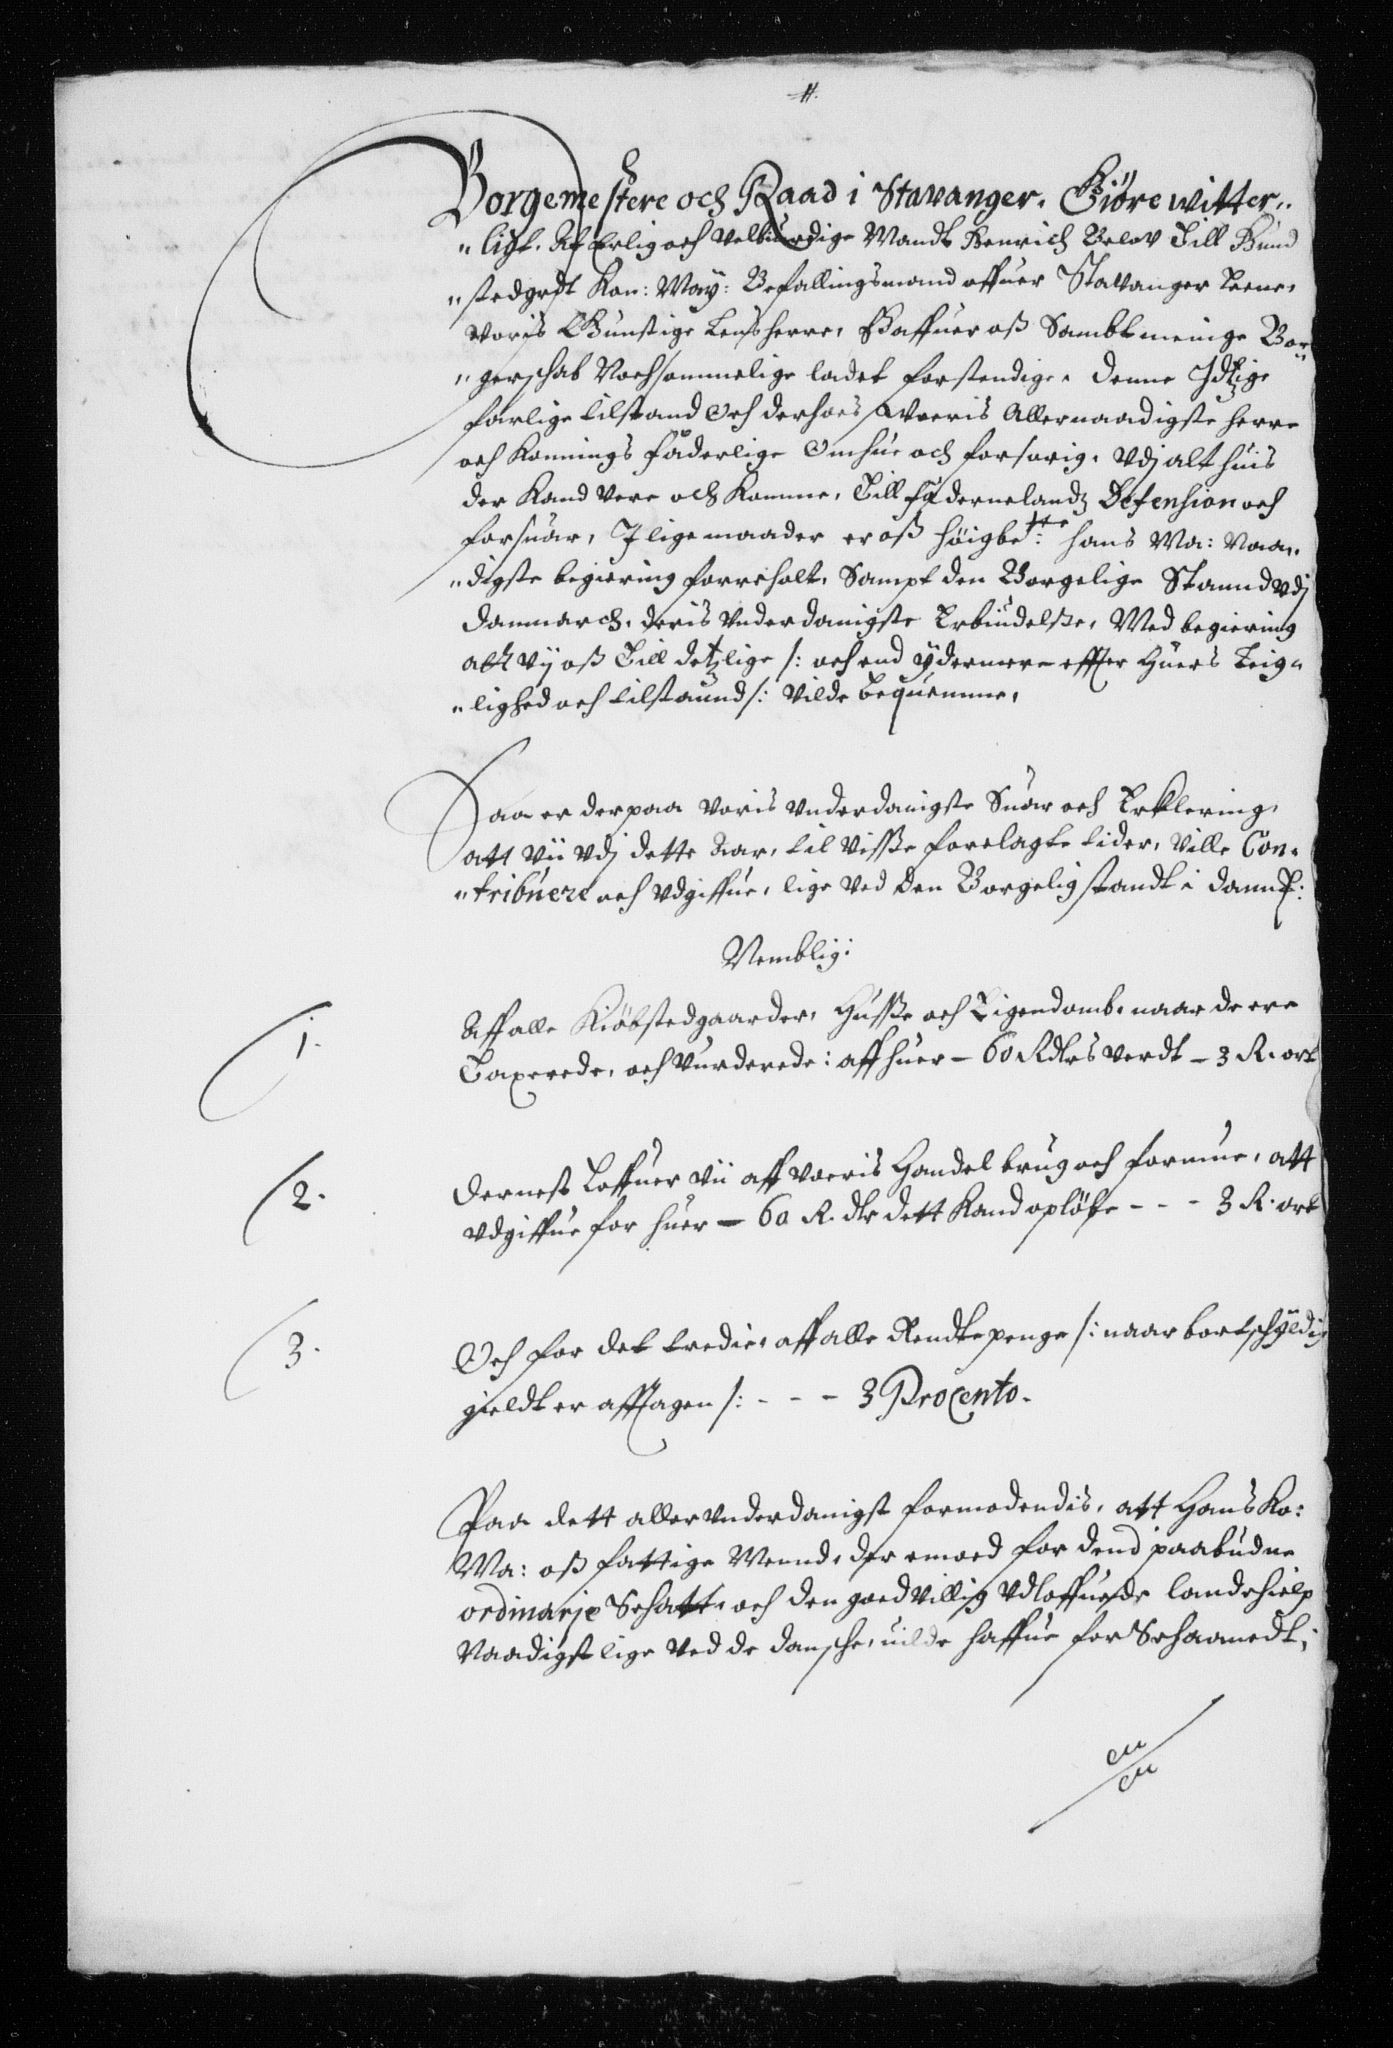 Borgemestere och Raad i Stavanger. Giöre witter„
„ligt. At Erlig och Velbiurdige Mandt Henrich Below Till Hund
„stedgrdt Kon: May: Befallingsmand offuer Stavanger Leene,
voris Gunstige Lensherre, Haffuer oß Sambt menige Bor„
„gerschab Nochsommelige ladet forstendige. denne Jdtzige
farlige tilstand Och derhoes Woeris Allernaadigste herre
och Konnings faderlige Omhue och forsorig. Vdj alt huis
der Kand vere och Komme, Till fædernelandz Defension och
forsuar, J lige maader er oß höigbe:te hans Ma: Naa„
„digste begiering foreholt, Sampt den Borgelige Stannd vdj
Danmarch, deris vnderdanigste Erbiudelße, Med begiering
att vij oß Till detzlige /: och end ÿdermere effter Huers Leig„
„lighed och tilstaund :/ vilde bequemme,
Saa er derpaa voris vnderdanigste Suar och Erklering,
att vii vdj dette Aar, til visße forelagte tider, ville Con„
„tribuere och vdgiffue, lige ved den Borgelig standt i danmk:
Nemblig:
1. Aff alle Kiöbstedgaarder, Husße och Eigendomb, naar de ere
Taxerede, och vurderede: aff huer – 60 Rdlrs verdt – 3 R. ort
2. Dernest Loffuer vii aff voeris Handel brug och formue, att
vdgiffue for huer – 60 R. dlr dett Kand opløbe - - - 3 R. ort
3. Och for det tredie, aff alle Rendtepenge /: naar bortschÿldig
gieldt er afftagen /: - - - 3 Procento.
Paa dett allervnderdanigst formodendis, att Hans Ko:
Ma: oß fattige Mennd, der emoed for dend paabudne
ordinarje Schatt, och den goedvillig vdloffuede landehielp
Naadigst lige ved de dansche, uilde haffue for Schaanedt,